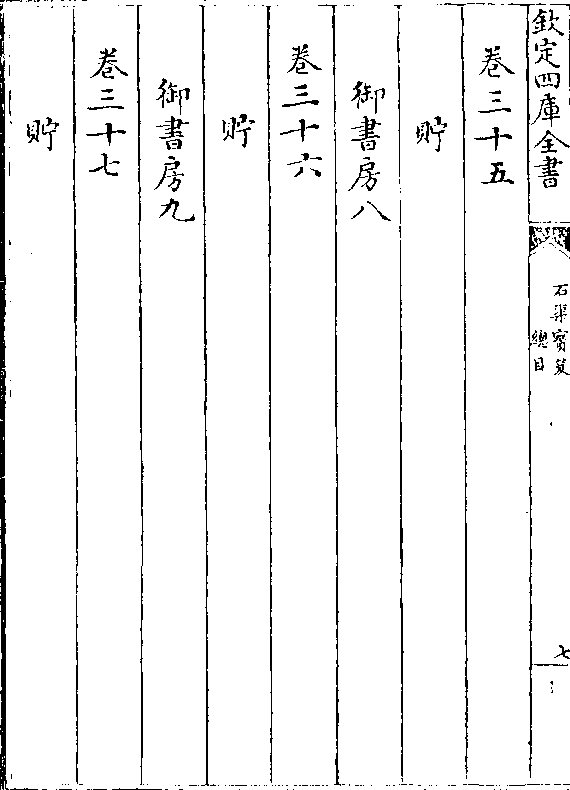 欽定四庫全書
石渠寳笈
總目
七
卷三十五
貯
御書房八
卷三十六
貯
御書房九
卷三十七
貯